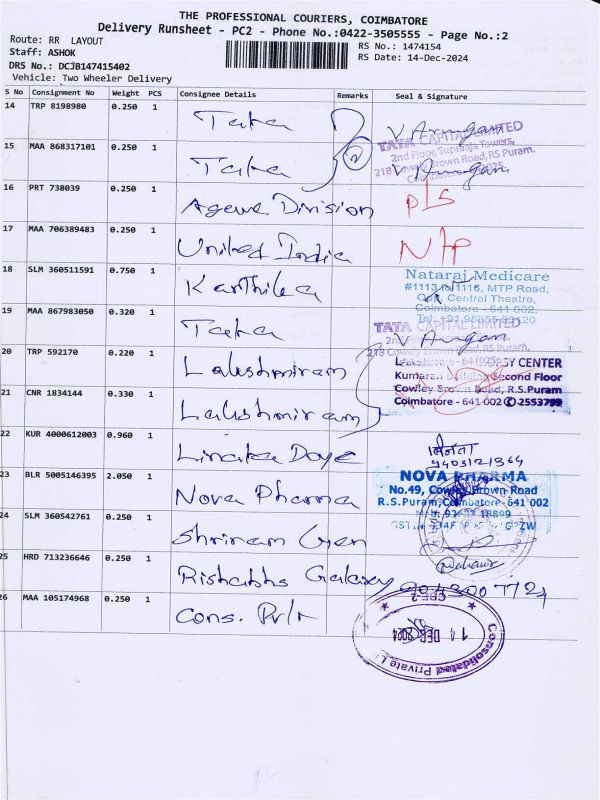 THE PROFESSIONAL COURIERS, COIMBATORE
Delivery Runsheet - PC2 - Phone No.:0422-3505555 - Page No.:2
Route: RR LAYOUT
Staff: ASHOK
DRS No.: DCJB147415402
Vehicle: Two Wheeler Delivery
RS No.: 1474154
RS Date: 14-Dec-2024
S No Consignment No Weight PCS Consignee Details Remarks Seal & Signature
14 TRP 8198980 0.250 1 Tata
15 MAA 868317101 0.250 1 Tata
TATA CAPITAL LIMITED
2nd Floor, Supraja Towers,
218 Cowley Brown Road, RS Puram,
16 PRT 738039 0.250 1 Agewe Division P/S
17 MAA 706389483 0.250 1 United India N/P
18 SLM 360511591 0.750 1 Karthika
Nataraj Medicare
#1113 to 1116, MTP Road,
Opp. Central Theatre,
Coimbatore - 641 002.
19 MAA 867983050 0.320 1 Tata
TATA CAPITAL LIMITED
218 Cowley Brown Road, RS Puram,
20 TRP 592170 0.220 1 Lakshmiram
21 CNR 1834144 0.330 1 Lakshmiram
CENTER
Second Floor
Cowley Brown Road, R.S.Puram
Coimbatore - 641 002 ✆ 2553799
22 KUR 4000612003 0.960 1
23 BLR 5005146395 2.050 1 Nova Pharma
NOVA PHARMA
No.49, Cowley Brown Road
R.S.Puram, Coimbatore-641 002
24 SLM 360542761 0.250 1 Shriram Gen
25 HRD 713236646 0.250 1 Rishabhs Galaxy
26 MAA 105174968 0.250 1 Cons. Pvt
14 DEC 2024
Consolidated Private L